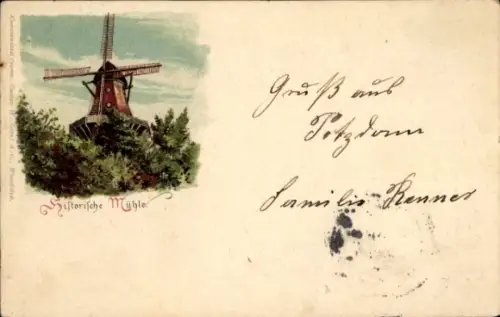 Historische Mühle.
Gruß aus
Potzdam
Familie Renner